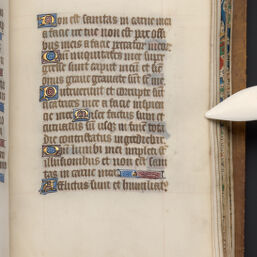 Non est sanitas in carne mea
a facie ire tue non est pax ossi
bus meis a facie peccator meor
Qm iniquitates mee supr
gresse sunt caput meu et sic
onus grave gravate sut se me
Putruerunt et corrupte sut
cicatrices mee a facie insipien
cie mee Miser factus sum et
curvatus su usq in fine tota
die contristatus ingrediebar
Qm lumbi mei impleti st
illusionibus et non est sani
tas in carne mea
Afflictus sum et humiliat